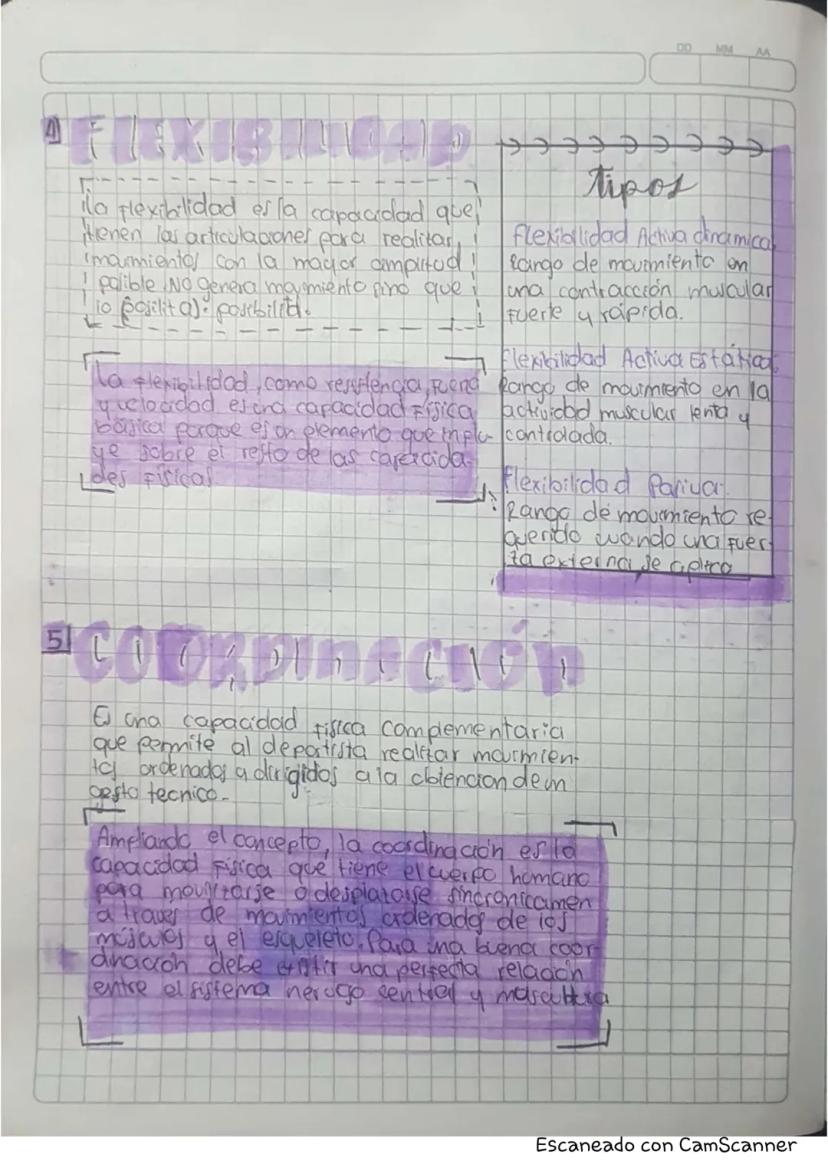 DD MM AA
4 FLEXIBILIDAD
La flexibilidad es la capacidad que
tienen las articulaciones para realizar
movimientos con la mayor amplitud
posible. No genera movimiento sino que
lo posibilita).
La flexibilidad, como resistencia, fuerza
y velocidad es una capacidad física
básica porque es un elemento que influ-
ye sobre el resto de las
des físicas
Tipos
Flexibilidad Activa dinamica
Rango de movimiento en
una contracción muscular
fuerte y rápida.
Flexibilidad Activa Estática
Rango de movimiento en la
actividad muscular lenta y
controlada.
Flexibilidad Pasiva:
Rango de movimiento re-
querido cuando una fuer-
za externa se aplica
5 COORDINACIÓN
Es una capacidad física complementaria
que permite al deportista realizar movimien-
tos ordenados a dirigidos a la obtencion de un
gesto tecnico.
Ampliando el concepto, la coordinación es la
capacidad física que tiene el cuerpo humano
para movilizarse o desplazarse sincronicamen
a traves de movimientos ordenados de los
músculos y el esqueleto. Para una buena coor-
dinación debe existir una perfecta relación
entre el sistema nervioso central y
Escaneado con CamScanner